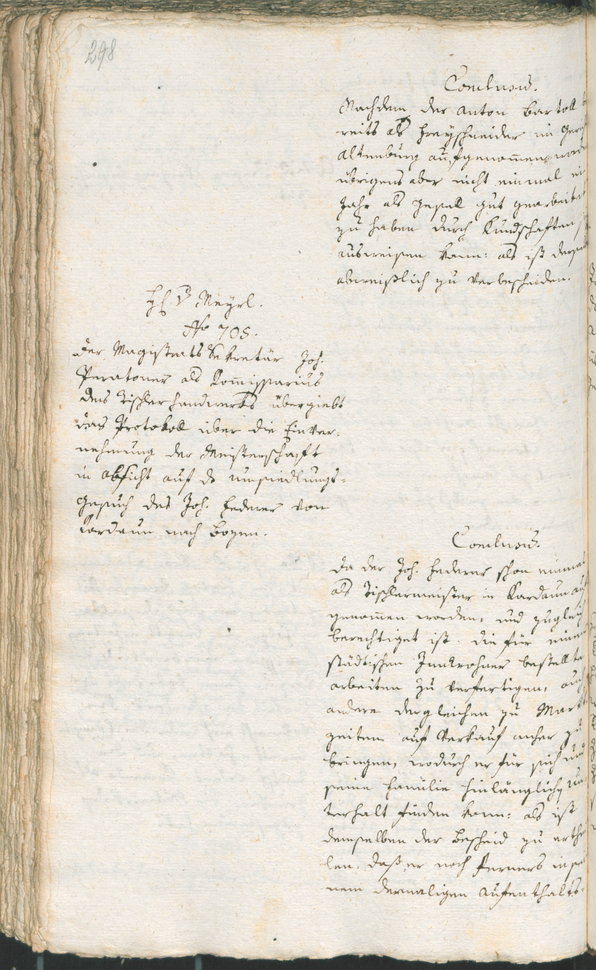 298
Conclusum.
Nachdem der Anton Bartoll be
reits als Freyschneider im Geri
Altenburg aufgenommen word
übrigens aber nicht einmal ein
Jahr als Gesell gut gearbeitet
zu haben durch Kundschaften
ausweisen kann: als ist derse
abweislich zu verbescheiden.
H: v Meyrl.
No 705.
Der Magistrats Sekretär Joh:
Peratoner als Kommissarius
des Tischlerhandwerks übergiebt
das Protokol über die Einver-
nehmung der Meisterschaft
in Absicht auf das Umsiedlungs-
gesuch des Joh. Federer von
Kardaun nach Bozen.
Conclusum.
Da der Joh. Federer schon einmal
als Tischlermeister in Kardaun auf
genommen worden, und zugleich
berechtiget ist, die für einen
städtischen Innwohner bestellte
Arbeiten zu verfertigen, auch
andere dergleichen zu Markt
zeiten auf Verkauf anher zu
bringen, wodurch er für sich und
seine Familie hinlänglichen Un
terhalt finden kann: als ist
demselben der Bescheid zu erthei
len, daß er noch ferners in sei
nem dermaligen Aufenthalts-